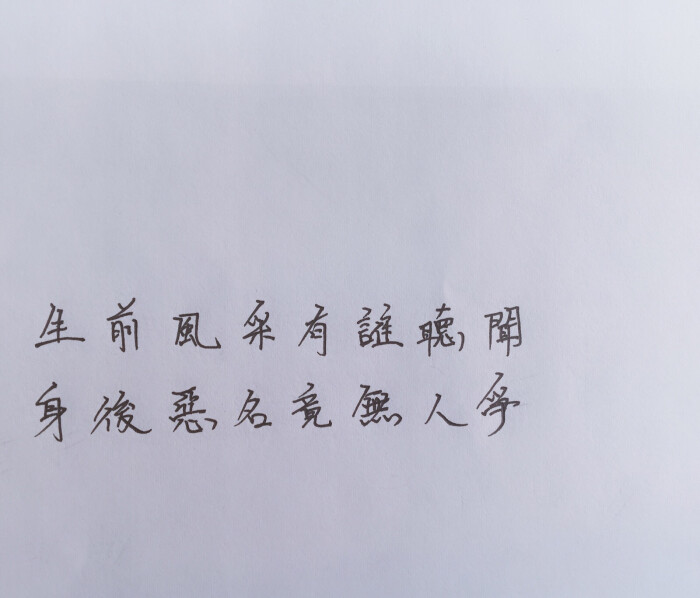 生前風采有誰聽聞
身後惡名竟無人爭